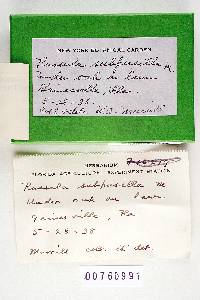 NEW YORK BOTANICAL GARDEN
Russula subpusilla M.
Under oak in lawn
Gainesville, Fla.
5-28-38
HERBARIUM
FLORIDA AGRICULTURAL EXPERIMENT STATION
Russula subpusilla M
Under oak in lawn
Gainesville, Fla
5-28-38
Murrill coll. et det.
00760991